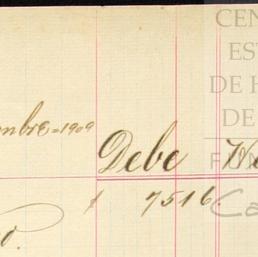 CEN
EST
DE H
DE
FUN
Ca
mbre = 1909
Debe
$ 7516.